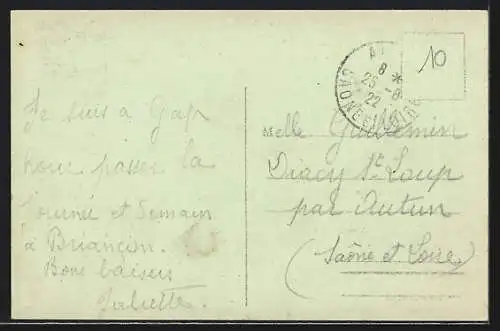 Je suis a Gap
pour passer la
journé et demain
à Briançon.
Bons baisers
Juliette.
A
8 *
25 - 8
22
SAONE ET LOIRE
10
Melle Guillemin
Dracy St Loup
par Autun
(Saône et Loire)